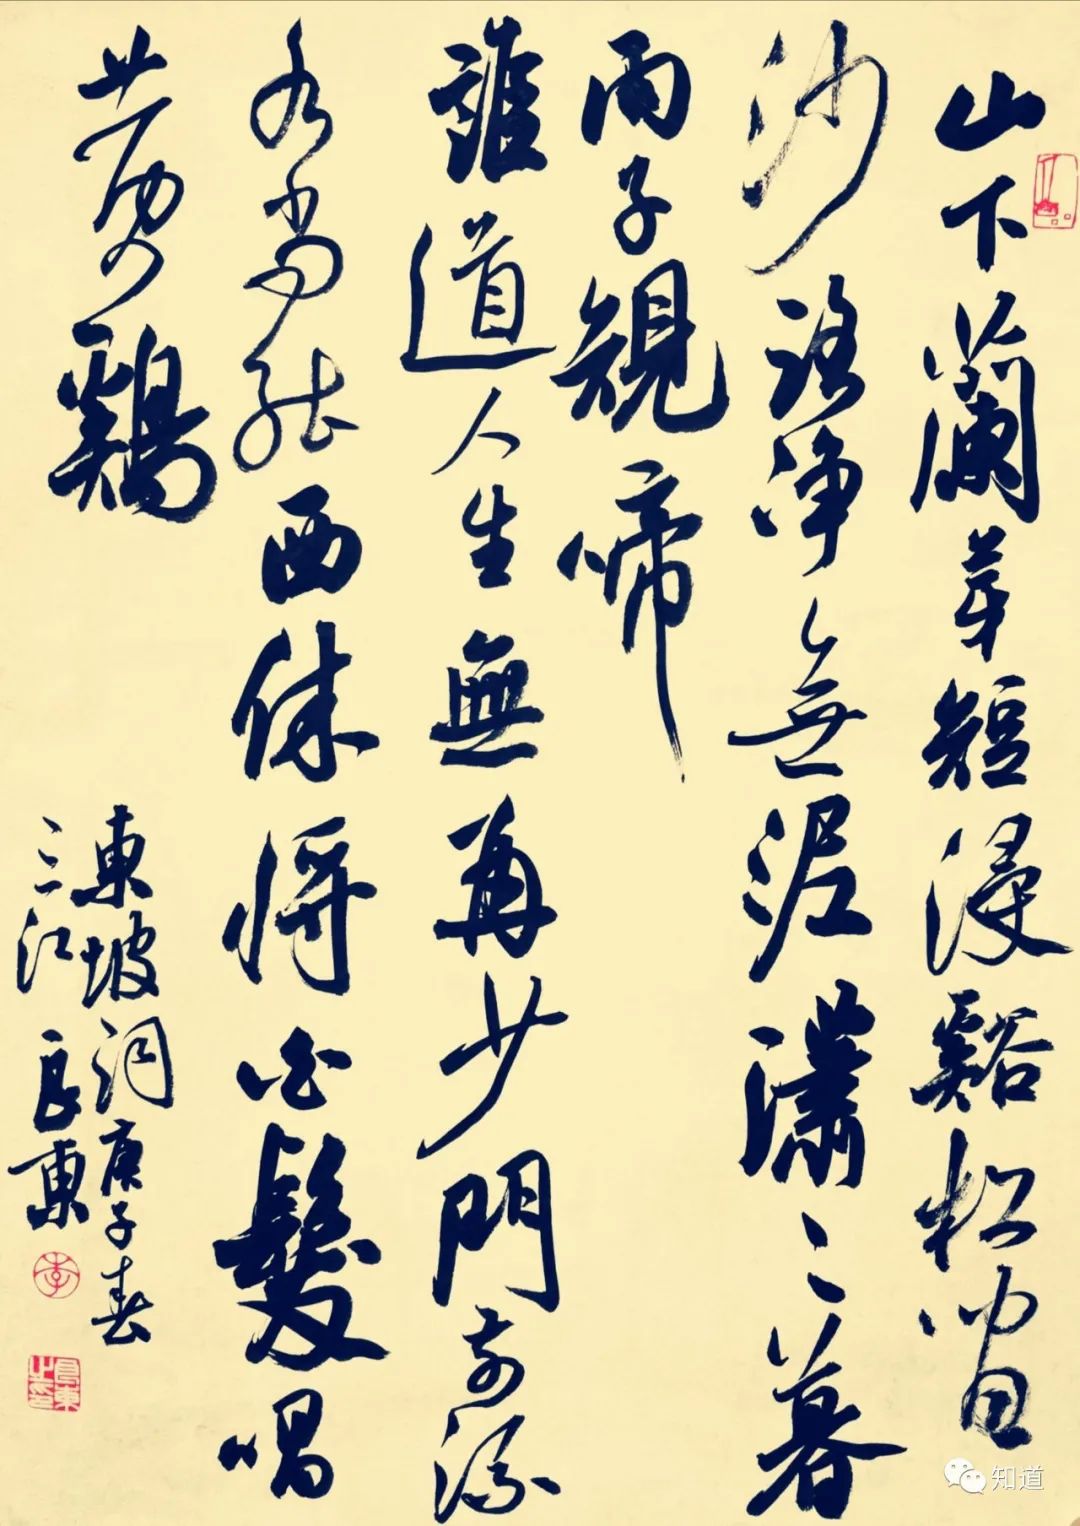 山下蘭芽短浸谿松間
沙路淨無泥瀟〻暮
雨子規啼
誰道人生無再少門前流
水尚能西休將白髮唱
黃鷄
東坡詞庚子春
三江良東
李
良東之印
知道